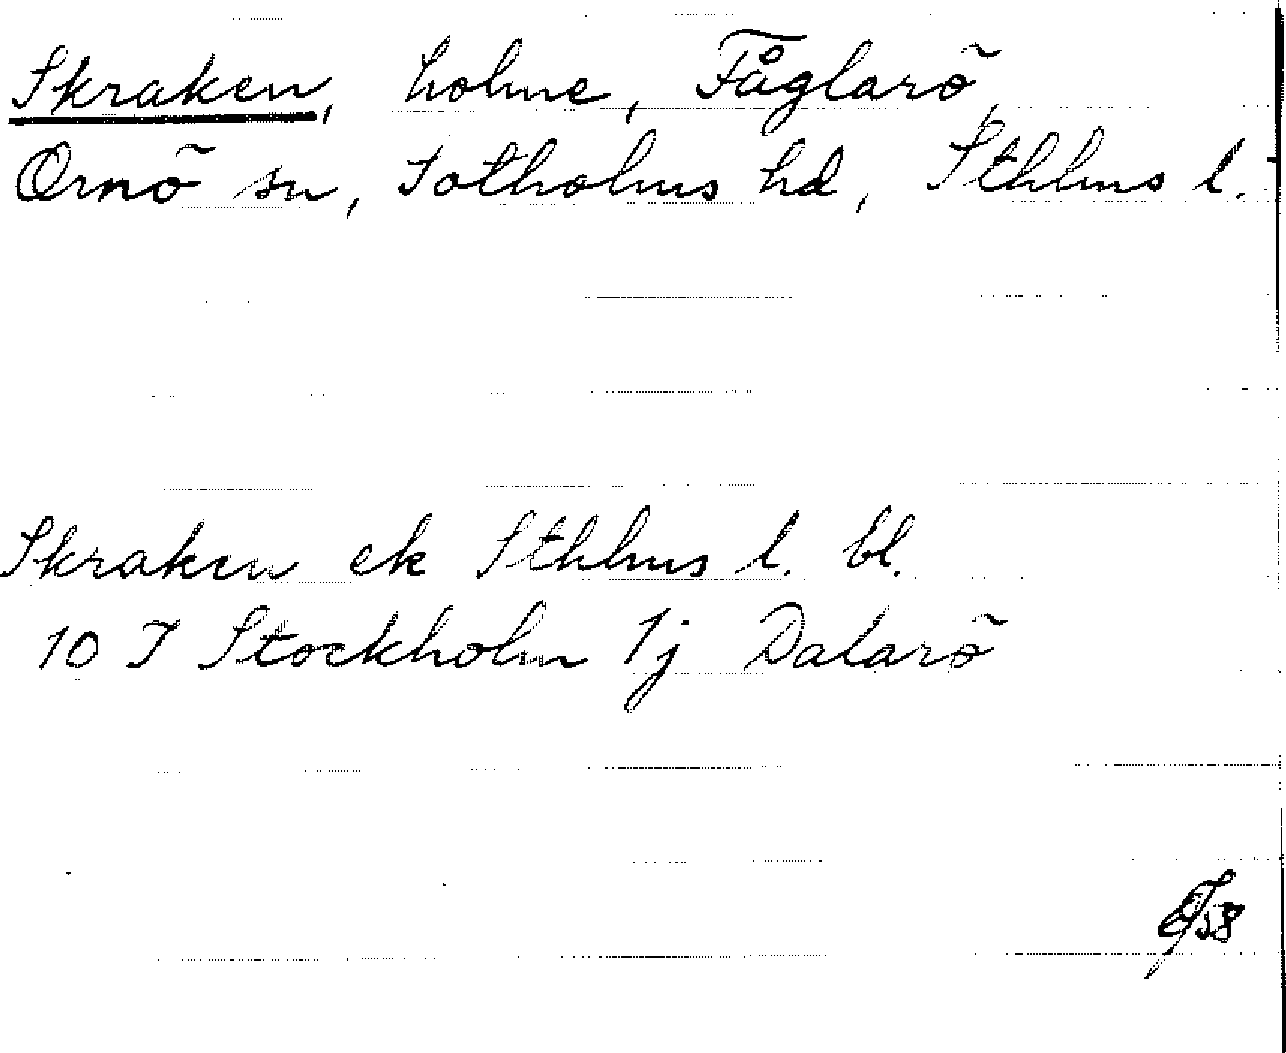 Skraken, holme, Fåglarö,
Ornö sn, Sotholms hd, Sthlms l.
Skraken ek Sthlms l. bl.
10 I Stockholm 1j Dalarö